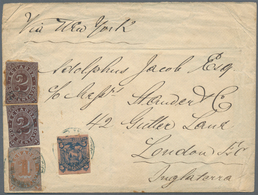 Via New York
Adolphus Jacob Esq
c/o Messrs Stander & Co
42 Gutter Lane
London E.C
Inglaterra
2
2
1